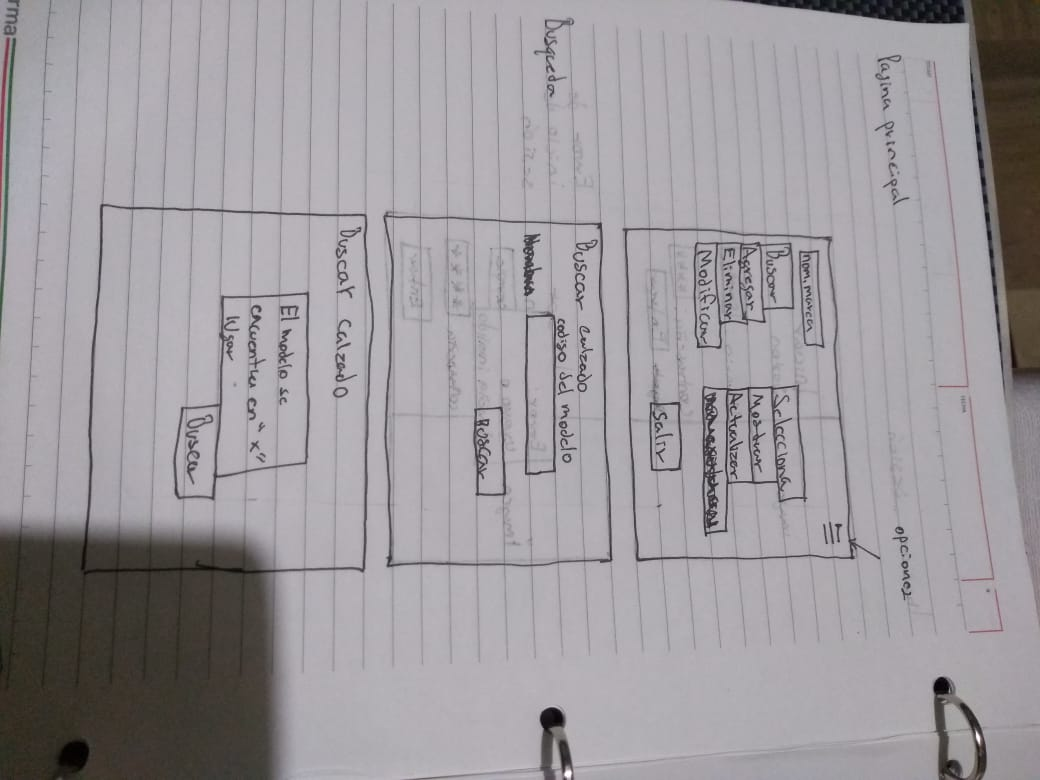 Pagina principal
opciones
nom.marca
Buscar
Agregar
Eliminar
Modificar
Selecciona
Mostrar
Actualizar
Salir
Busqueda
Buscar calzado
codigo del modelo
Buscar
Buscar calzado
El modelo se
encuentra en "x"
lugar.
Buscar
rma